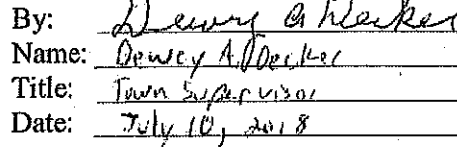 By: Dewey A Decker
Name: Dewey A. Decker
Title: Town Supervisor
Date: July 10, 2018